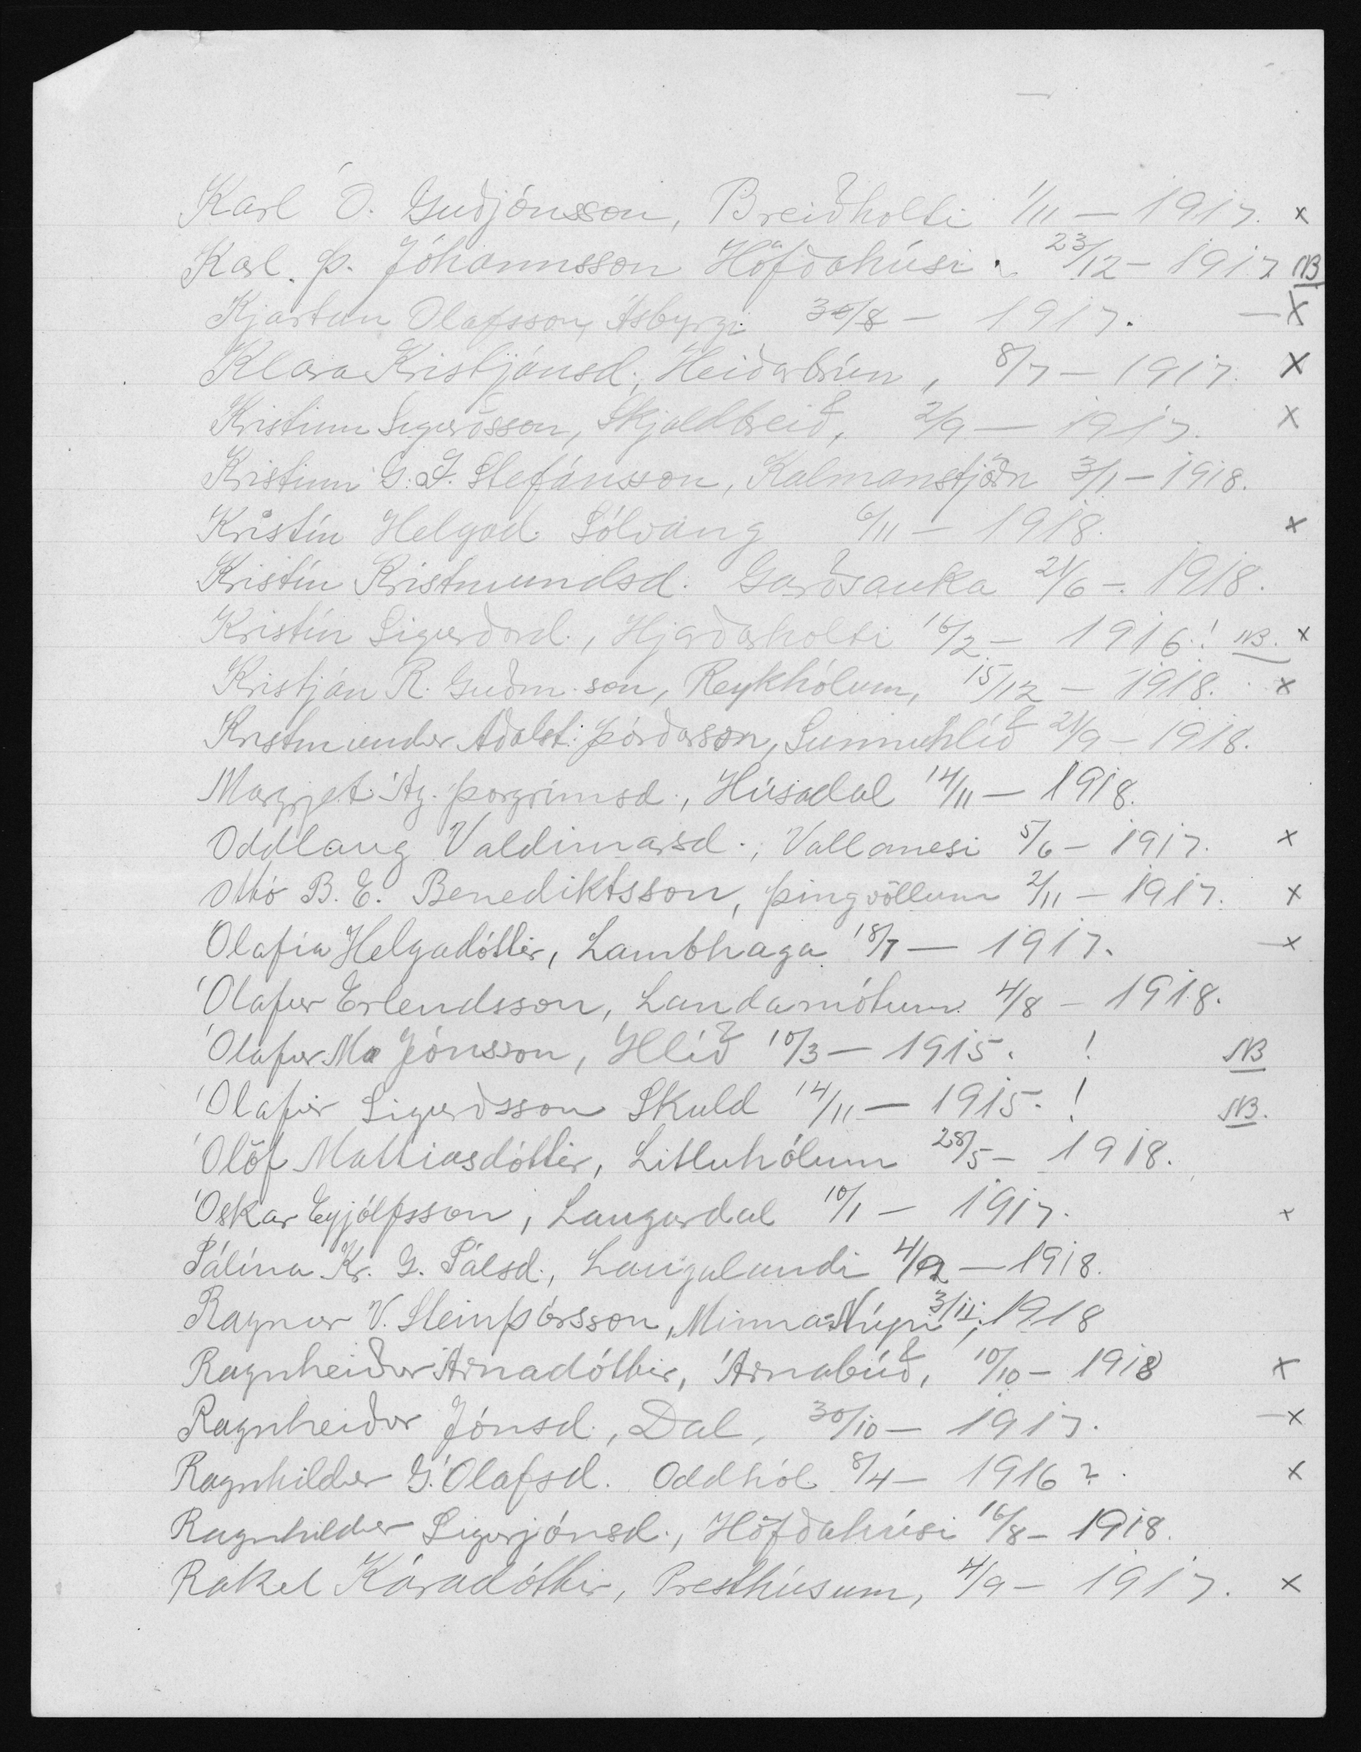 Karl Ó. Guðjónsson, Breiðholti 1/11 — 1917. x
Karl. Þ. Jóhannsson Höfðahúsi. 23/12 - 1917 NB
Kjartan Ólafsson, Ásbyrgi 30/8 — 1917. — X
Klara Kristjánsd., Heiðarbrún, 8/7 — 1917. X
Kristinn Sigurðsson, Skjaldbreið, 2/9 — 1917. X
Kristinn G. J. Stefánsson, Kalmanstjörn 3/1 — 1918.
Kristín Helgad. Sólvang 6/11 — 1918. x
Kristín Kristmundsd. Garðsauka 21/6 - 1918.
Kristín Sigurðard., Hjarðarholti 16/2 — 1916.! NB. x
Kristján R. Guðm.son, Reykhólum, 15/12 — 1918. x
Kristmundur Aðalst. Þórðarson, Sunnuhlíð 21/9 — 1918.
Margrjet Ág. Þorgrímsd., Húsadal 14/11 — 1918.
Oddlaug Valdimarsd., Vallanesi 5/6 — 1917. x
Ottó B. E. Benediktsson, Þingvöllum 2/11 — 1917. x
Ólafía Helgadóttir, Lambhaga 18/7 — 1917. — x
Ólafur Erlendsson, Landamótum 4/8 — 1918.
Ólafur Ma Jónsson, Hlíð 10/3 — 1915. ! NB
Ólafur Sigurðsson Skuld 14/11 — 1915. ! NB.
Ólöf Mattiasdóttir, Litluhólum 28/5 — 1918.
Óskar Eyjólfsson, Laugardal 10/1 — 1917. x
Pálína Kr. G. Pálsd., Laugalandi 4/12 — 1918.
Ragnar V. Steinþórsson, Minna-Núpi, 3/11. 1918
Ragnheiður Árnadóttir, Árnabúð, 10/10 — 1918 x
Ragnheiður Jónsd., Dal, 30/10 — 1917. — x
Ragnhildur G. Ólafsd. Oddhól 8/4 — 1916 ?. x
Ragnhildur Sigurjónsd., Höfðahúsi 16/8 — 1918.
Rakel Káradóttir, Presthúsum, 4/9 — 1917. x